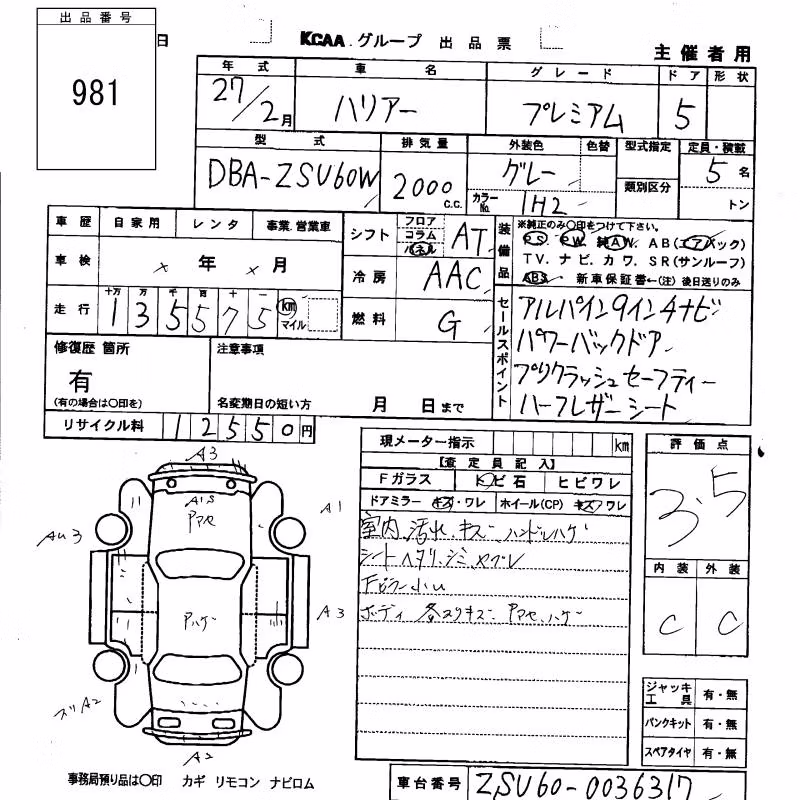 出品番号
981
日
KCAA.グループ 出品票
主催者用
年式 車名 グレード ドア 形状
27/2月 ハリアー プレミアム 5
型式 排気量 外装色 色替 型式指定 定員・積載
DBA-ZSU60W 2000c.c. グレー 類別区分 5名
カラーNo. 1H2 トン
車歴 自家用 レンタ 事業.営業車
車検 × 年 × 月
走行 十万 万 千 百 十 一
135575 km マイル
シフト フロア コラム パネル AT
冷房 AAC
燃料 G
装備品
※純正のみ○印をつけて下さい。
PS. PW. 純AW. AB(エアバック)
TV. ナビ. カワ. SR(サンルーフ)
ABS 新車保証書←(注) 後日送りのみ
セールスポイント
アルパイン9インチナビ
パワーバックドア
プリクラッシュセーフティー
ハーフレザーシート
修復歴 箇所
有
(有の場合は○印を)
注意事項
名変期日の短い方 月 日まで
リサイクル料 12550円
現メーター指示 km
【査定員記入】
Fガラス トビ石 ヒビワレ
ドアミラー キズ・ワレ ホイール(CP) キズ ワレ
室内 汚れ キズ ハンドルハゲ
シート ヘタリ シミ ヤブレ
下回り小
ボディ 各スリキズ アマセ ハゲ
評価点
3.5
内装 外装
C C
ジャッキ 工具 有・無
パンクキット 有・無
スペアタイヤ 有・無
A3
A'S
アマセ
A1
AU3
アハゲ
A3
スリA2
A2
事務局預り品は○印 カギ リモコン ナビロム
車台番号 ZSU60-0036317